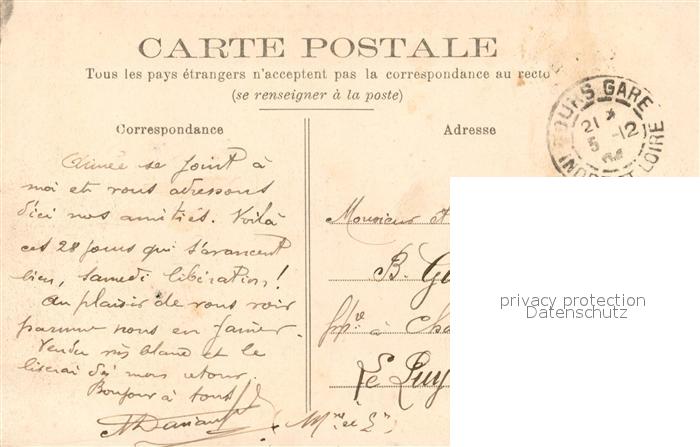 CARTE POSTALE
Tous les pays étrangers n'acceptent pas la correspondance au recto
(se renseigner à la poste)
Correspondance
Adresse
TOURS GARE
21
5 -12
INDRE ET LOIRE
Aimée se joint à
moi et vous adressons
d'ici nos amitiés. Voilà
ces 28 jours qui s'avancent
bien, samedi libération!
Au plaisir de vous voir
parmi nous en Janvier.
vin blanc et le
mon retour.
Bonjour à tous
Monsieur et
B.
à Cha
Le Puy
(Mme et
privacy protection
Datenschutz